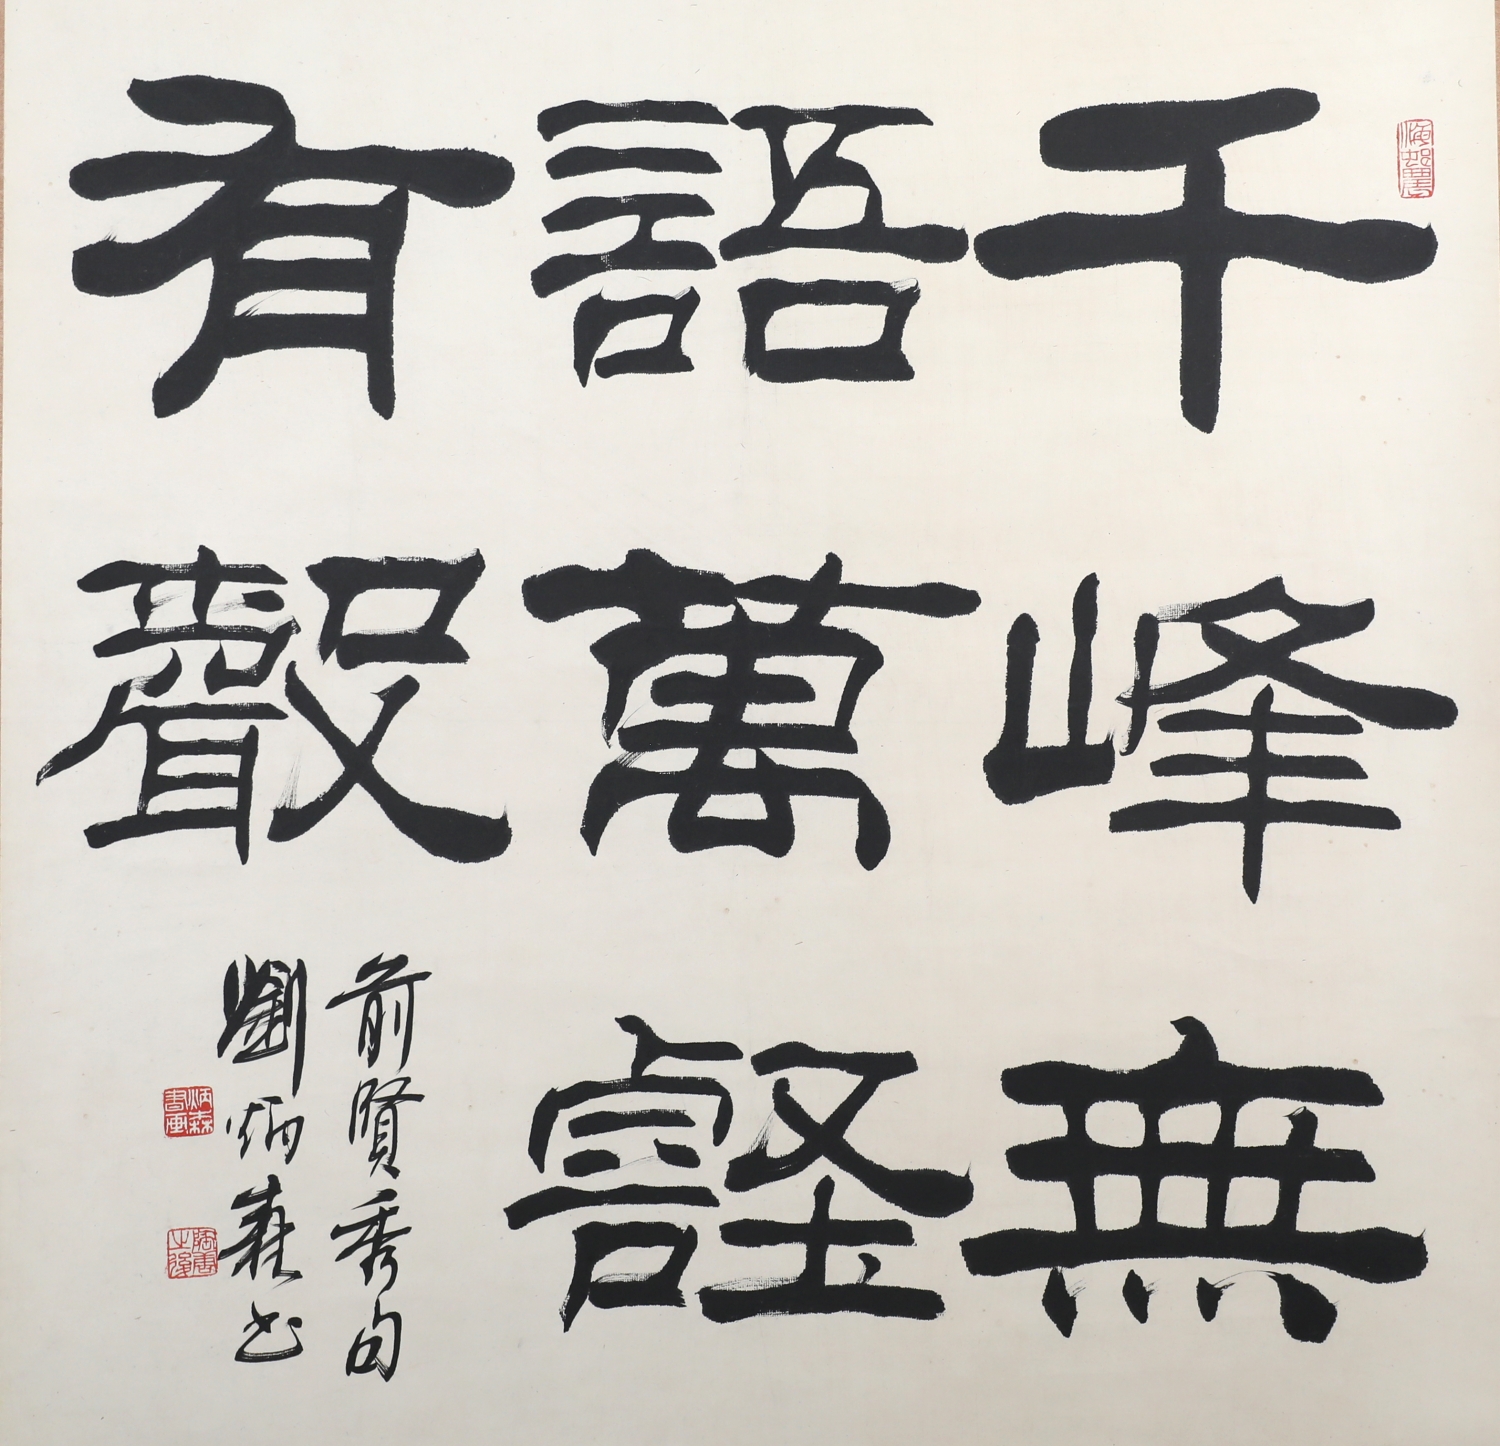 千峰無
語萬壑
有聲
前賢秀句
劉炳森書
炳森書画
陶唐之後